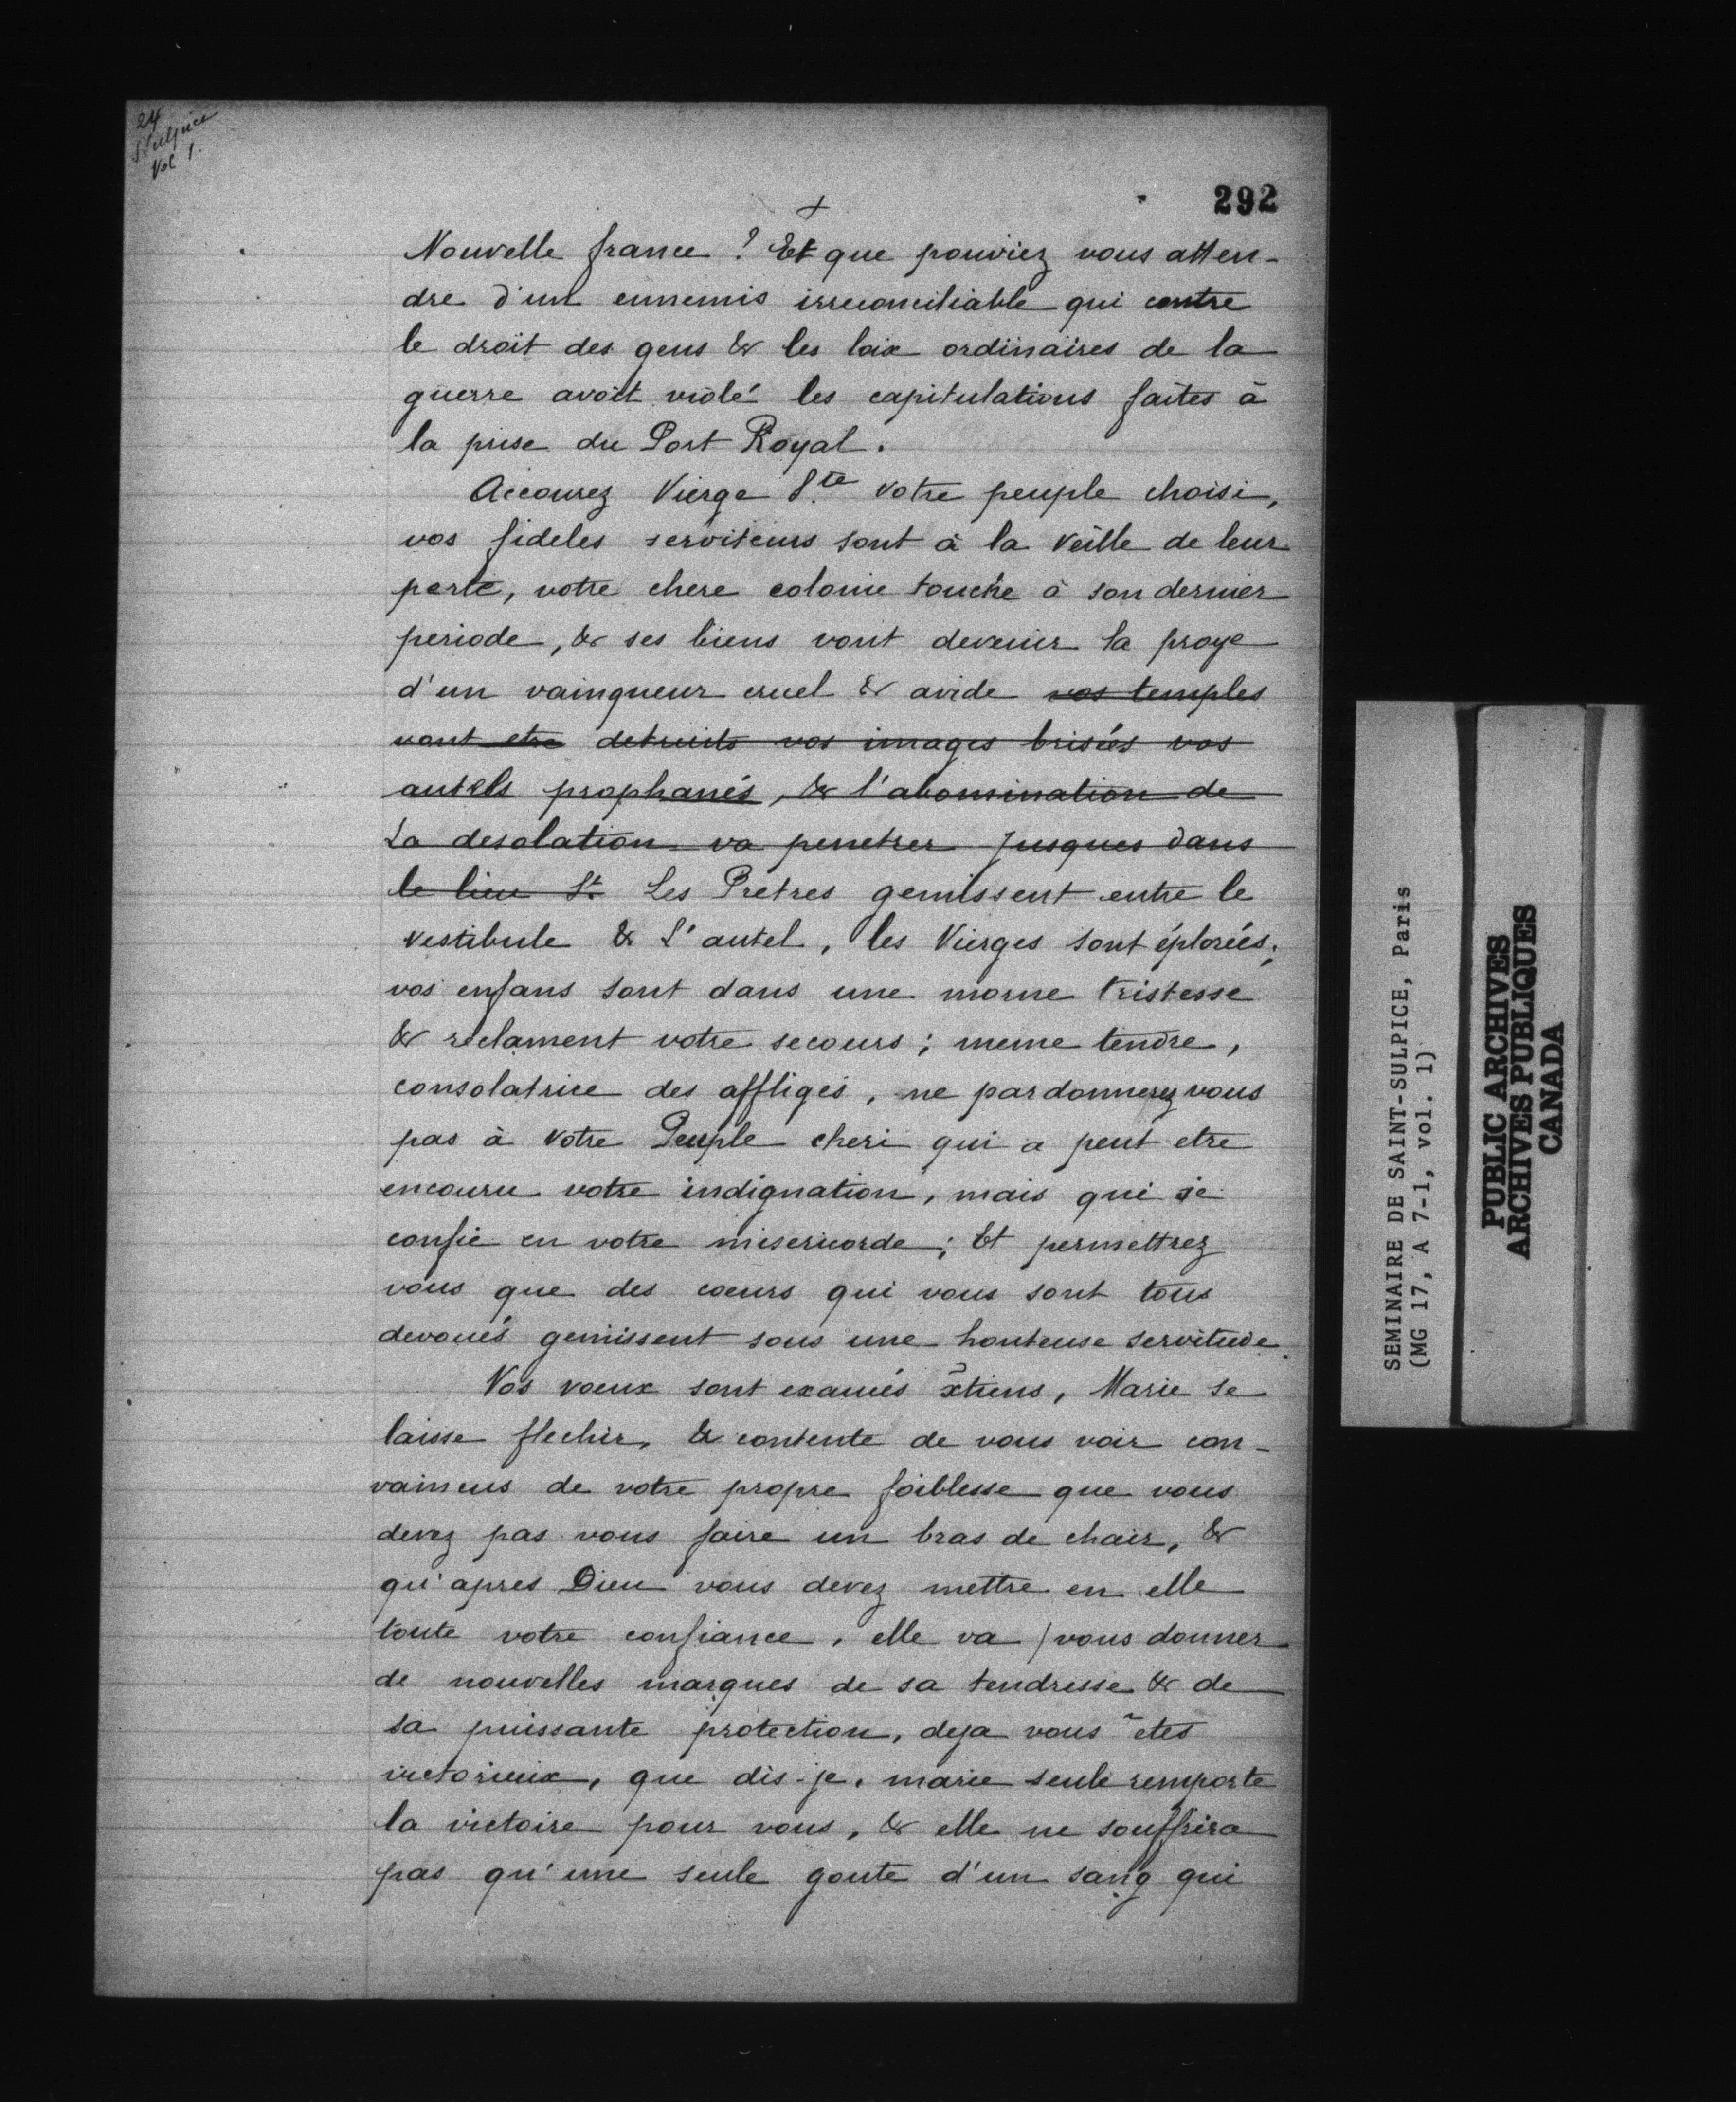 24
St Sulpice
Vol 1.
292
+
Nouvelle france ? Et que pouviez vous atten-
dre d'un ennemis irreconciliable qui contre
le droit des gens & les loix ordinaires de la
guerre avoit violé les capitulations faites à
la prise du Port Royal.
Accourez Vierge Ste votre peuple choisi,
vos fideles serviteurs sont à la veille de leur
perte, votre chere colonie touche à son dernier
periode, & ses biens vont devenir la proye
d'un vainqueur cruel & avide vos temples
vont etre detruits vos images brisées vos
autels prophanés, & l'abomination de
la desolation va penetrer jusques dans
le lieu St. Les Pretres gemissent entre le
vestibule & l'autel, les Vierges sont éplorées;
vos enfans sont dans une morne tristesse
& reclament votre secours; meme tendre,
consolatrice des affligés, ne pardonnerez vous
pas à votre Peuple cheri qui a peut etre
encouru votre indignation, mais qui se
confie en votre misericorde; Et permettrez
vous que des coeurs qui vous sont tous
devoués gemissent sous une honteuse servitude.
Vos voeux sont exaucés x̃tiens, Marie se
laisse flechir, & contente de vous voir con-
vaincus de votre propre foiblesse que vous
devez pas vous faire un bras de chair, &
qu'apres Dieu vous devez mettre en elle
toute votre confiance, elle va /vous donner
de nouvelles marques de sa tendresse & de
sa puissante protection, deja vous etes
victorieux, que dis-je. marie seule remporte
la victoire pour vous, & elle ne souffrira
pas qu'une seule goute d'un sang qui
SEMINAIRE DE SAINT-SULPICE, Paris
(MG 17, A 7-1, vol. 1)
PUBLIC ARCHIVES
ARCHIVES PUBLIQUES
CANADA